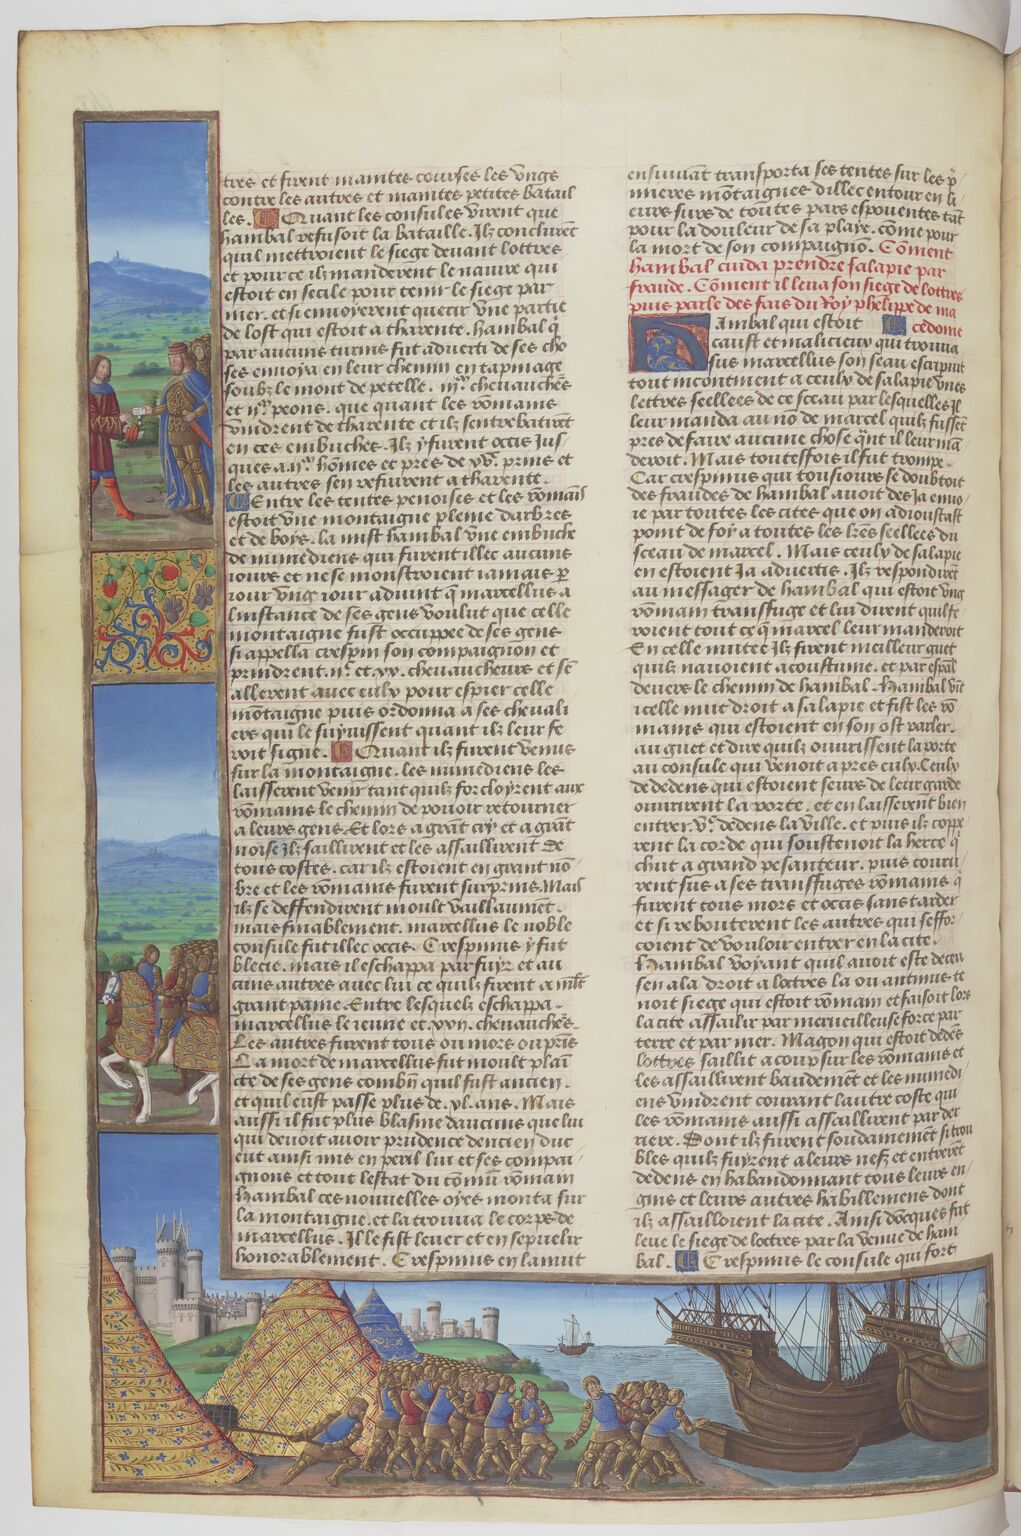 tres et firent maintes courses les ungs
contre les autres et maintes petites batail
les. Quant les consules virent que
hanibal refusoit la bataille. Ilz conclurent
quil mettroient le siege devant lottres
et pource ilz manderent le navire qui
estoit en secile pour tenir le siege par
mer. et si envoyerent querir une partie
de lost qui estoit a tharente. hanibal q̄
par aucuns turins fut adverti de ses cho
ses envoya en leur chemin en tapinage
soubz le mont de petelle. iij.m chevauche͞s
et ij.m peons. que quant les rōmains
vindrent de tharente et ilz sentrebatirēt
en ces embuches. Ilz y furent occis jus-
ques a ij.m hōmes et pres de xvc. prins et
les autres sen refuirent a tharente.
Entre les tentes penoises et les rōmaīs
estoit une montaigne pleine darbres
et de boys. la mist hanibal une embuche
de numediens qui furent illec aucuns
iours et ne se monstroient iamais p̄
iour ung iour advint q̄ marcellus a
linstance de ses gens voulut que celle
montaigne fust occuppee de ses gens
si appella crespin son compaignon et
prindrent ijc. et xx. chevaucheurs et sē
allerent avec eulx pour espier celle
mōtaigne puis ordonna a ses chevali
ers qui le suyvissent quant ilz leur fe
roit signe. Quant ilz furent venus
sur la montaigne. les numediens les
laisserent venir tant quilz forcloyrent aux
rōmains le chemin de pouoir retourner
a leurs gens. Et lors a grāt cry et a grāt
noise Ilz saillirent et les assaillirent de
tous costes. car ilz estoient en grant nō-
bre et les rōmains furent surprins. Mais
ilz se deffendirent moult vaillaument.
mais finablement. marcellus le noble
consule fut illec occis. Crespinus y fut
blecie. mais il eschappa par fuyr et au
cuns autres avec lui ce quilz firent a mlt
grant paine. Entre lesquelz eschappa-
marcellus le ieune et. xvij. chevauche͞s.
Les autres furent tous ou mors ou pr͞is
La mort de marcellus fut moult plaī
cte de ses gens combn̄ quil fust ancien.
et quil eust passe plus de. xl. ans. Mais
aussi il fut plus blasme daucuns que lui
qui devoit avoir prudence dencien duc
eut ainsi mis en peril lui et ses compai-
gnons et tout lestat du cōmū rōmain
hanibal ces nouvelles oyes monta sur
la montaigne. et la trouva le corps de
marcellus. Il le fist lever et ensepvelir
honorablement. Crespinus en la nuit
ensuivāt transporta ses tentes sur les p̄
mieres mōtaignes dillec entour en li
eux surs de toutes pars espouentes tāt
pour la douleur de sa playe. cōme pour
la mort de son compaignō. Cōment
hanibal cuida prendre salapie par
fraude. Cōment il leva son siege de lottres
puis parle des fais du roy phelippe de ma
cedoine
Hanibal qui estoit
caust et malicieux qui trouva
sus marcellus son seau escripuit
tout incontinent a ceulx de salapie unes
lettres seellees de ce sceau par lesquelles Il
leur manda au nō de marcel quilz fussēt
pres de faire aucune chose q̄nt il leur mā
deroit. Mais toutesfois il fut trompe.
Car crespinus qui tousiours se doubtoit
des fraudes de hanibal avoit desia envo-
ie par toutes les cites que on adioustast
point de foy a toutes les lr̄es seellees du
sceau de marcel. Mais ceulx de salapie
en estoient Ia advertis. Ilz respondirēt
au messager de hanibal qui estoit ung
rōmain transfuge et lui dirent quilz fe
roient tout ce q̄ marcel leur manderoit
En celle nuitee Ilz firent meilleur guet
quilz navoient acoustume. et par espāl
devers le chemin de hanibal. Hanibal vīt
icelle nuit droit a salapie et fist les rō
mains qui estoient en son ost parler.
au guet et dire quilz ouvrissent la porte
au consule qui venoit apres eulx. Ceulx
de dedens qui estoient seurs de leur garde
ouvrirent la porte. et en laisserent bien
entrer. vc. dedens la ville. et puis ilz coppe
rent la corde qui soustenoit la herce q̄
chut a grand pesanteur. puis couru
rent sus a ses transfuges rōmains q̄
furent tous mors et occis sans tarder
et si rebouterent les autres qui seffor-
coient de vouloir entrer en la cite.
Hanibal voyant quil avoit este deceu
sen ala droit a lottres la ou antinus te
noit siege qui estoit rōmain et faisoit lors
la cite assailir par merveilleuse force par
terre et par mer. Magon qui estoit dedēs
lottres saillit a coup sur les rōmains et
les assaillirent baudement et les numedi-
ens vindrent courant lautre coste qui
les rōmains aussi assaillirent par der
riere. Dont ilz furent soudainemēt si trou
bles quilz fuyrent a leurs nefz et entrerēt
dedens en habandonnant tous leurs en-
gins et leurs autres habillemens dont
ilz assailloient la cite. Ainsi dōcques fut
leve le siege de loctres par la venue de hani
bal. Crespinus le consule qui fort